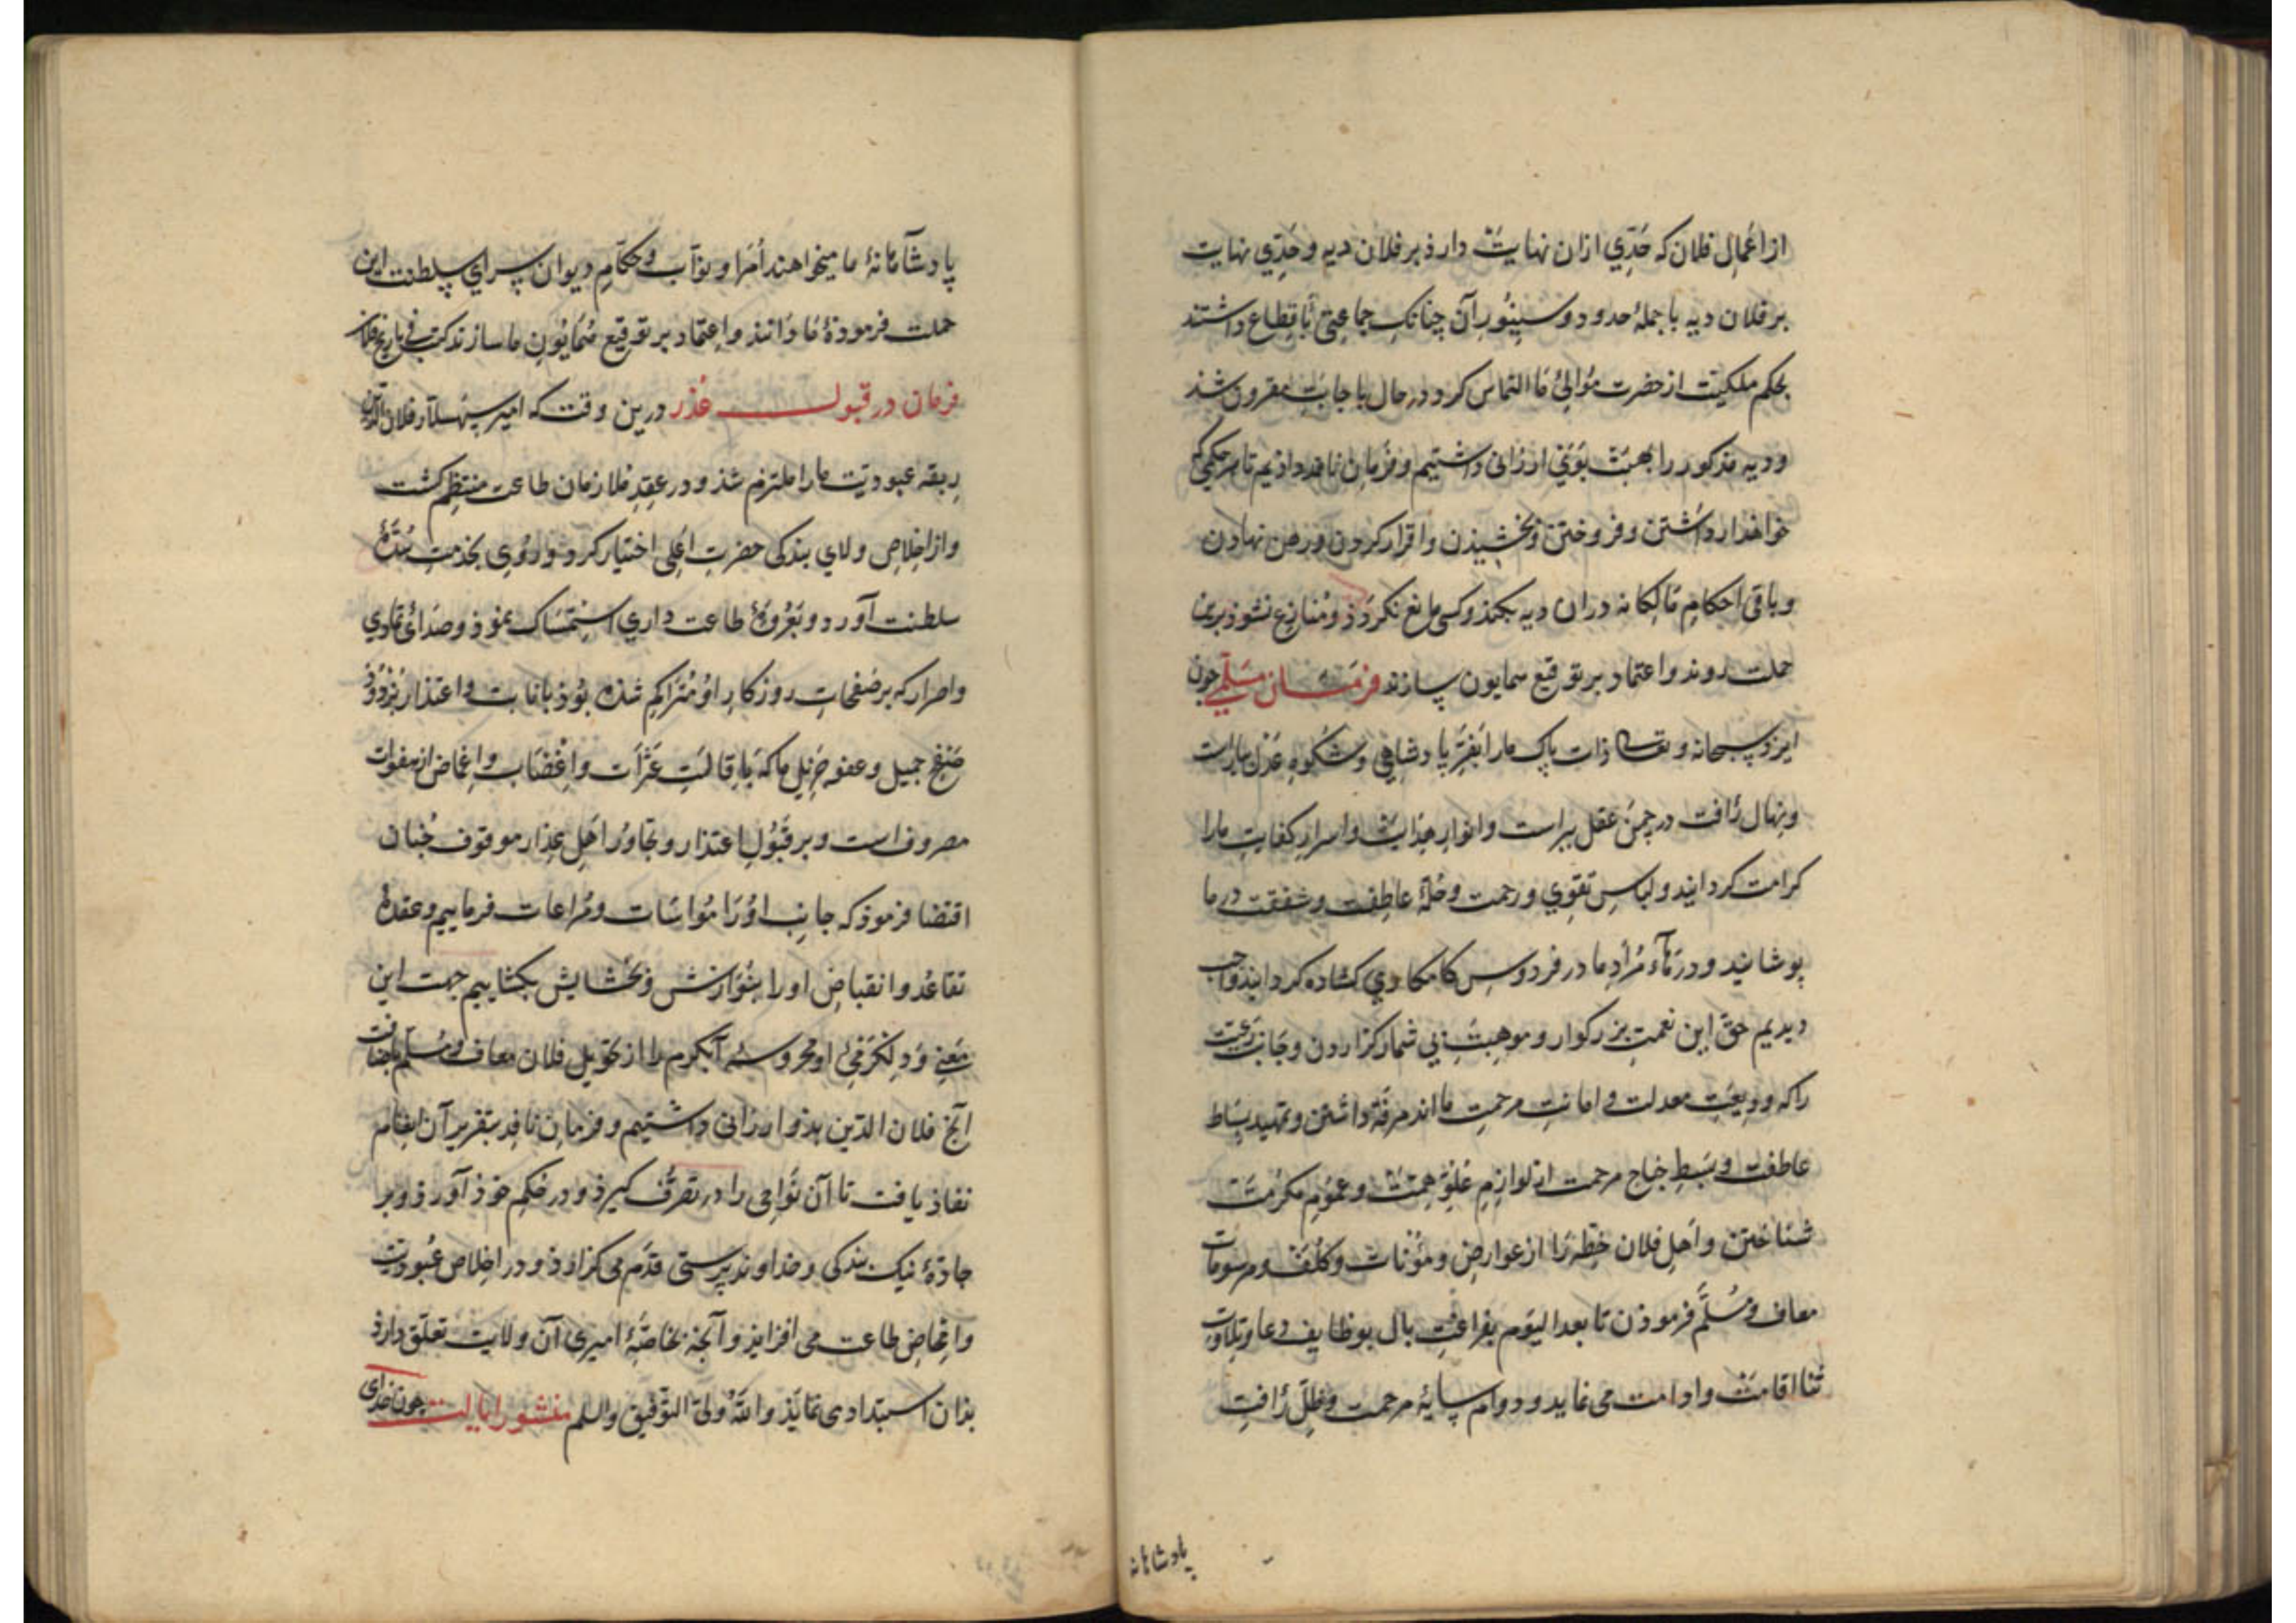 از اعمال فلان که حَدّي ازان نهایتْ دارذ بر فلان دیه و حَدّي نهایت
بر فلان دیه با جملهٔ حدود و سینُور آن چنانک جماعتی بِاقطاع داشتند
بحکم ملکیّت از حضرت مَوالیٔ ما التماس کرد در حال باجابت مقرون شذ
و دیه مذکور را بهبتْ بَوَی ارزانی داشتیم و فرمان نافذ داذیم تا هر حکمی که
خواهد از داشتن و فروختن و بخشیذن و اقرار کردن و رهن نهاذن
و باقی احکام مالکانه دران دیه بکند و کسی مانع نکرذذ و مُنازع نشوذ برین
جملت روند و اعتماد بر توقیع همایون سازند فرمان مسلّمی چون
ایزد سبحانه و تعالی ذات پاک ما را بفرّ پادشاهی و شکُوه عَدل بیاراست
و نهال رأفت در چمن عقل بیراست و انوار هدایت و اسرار کفایت ما را
کرامت کردانید و لباس تقوی و رحمت و حُلّهٔ عاطِفت و شفقت در ما
پوشانید و درهاء مُراد ما در فردوس کامکاری کشاده کردانید واجب
دیدیم حقّ این نعمت بزرکوار و موهبت بی شمار کزاردن و جانب رعیت
را که ودیعت معدلت و امانت مرحمت ما اند مرفّه داشتن و تمهید بساط
عاطفت و بَسط جناح مرحمت از لوازم عُلوّ همت و عموم مکرمت
شناختن و اهل فلان خِطّه را از عوارض و مؤنات و کُلَف و مرسومات
معاف و مسلّم فرموذن تا بعد الیوم بفراغت بال بوظایف دعا و تلاوت
ثنا اقامت و ادامت می نماید و دوام سایهٔ مرحمت و ظلّ رأفت
پادشاهانه
پادشاهانهٔ ما میخواهند اُمرا و نوّاب و حکّام دیوان سرای سلطنت این
جملت فرمودهٔ ما دانند و اعتماد بر توقیع همایون ما سازند کتب فی تاریخ فلان
فرمان در قبول عُذر درین وقت که امیر سپهسلار فلان الدّین
ربقه عبودیت ما را ملتزم شذ و در عقد ملازمان طاعت منتظم کشت
و از اخلاص ولای بندکی حضرت اعلی اختیار کرد و روی بخذمت سُدّهٔ
سلطنت آورد و بعُروهٔ طاعت داری استمساک نموذ و صدای تمادی
و اصرار که بر صفحات روزکار او مُتراکم شذه بُوذ بانابت و اعتذار بزدوذ
صَفح جمیل و عفو جزیل ما که باقالت عثرات و اغضاب و اغماض از هفوات
مصروفست و بر قبُول اعتذار و تجاوز اهل عذار موقوف چنان
اقتضا فرموذ که جانب او را مُواسات و مُراعات فرماییم و عقدهٔ
تقاعُد و انقباض او را بنُوازش و بخشایش بکشاییم جهت این
معنی و دلکرمی او محروسهٔ آبکرم را از تحویل فلان معاف و مسلّم باضافت
آنج فلان الدّین بذو ارزانی داشتیم و فرمان نافذ بتقریر آن انضام
نفاذ یافت تا آن نواحی را در تصرّف کیرذ و در حکم خوذ آورذ و بر
جادّهٔ نیک بندکی و خداوندپرستی قدم می کزارذ و در اخلاص عُبودیت
و امحاض طاعت می افزایذ و آنچه بخاصّهٔ امیری آن ولایت تعلّق دارذ
بذان استبدادی نمایذ والله ولیّ التّوفیق والسلم منشور ایالت چون خدای